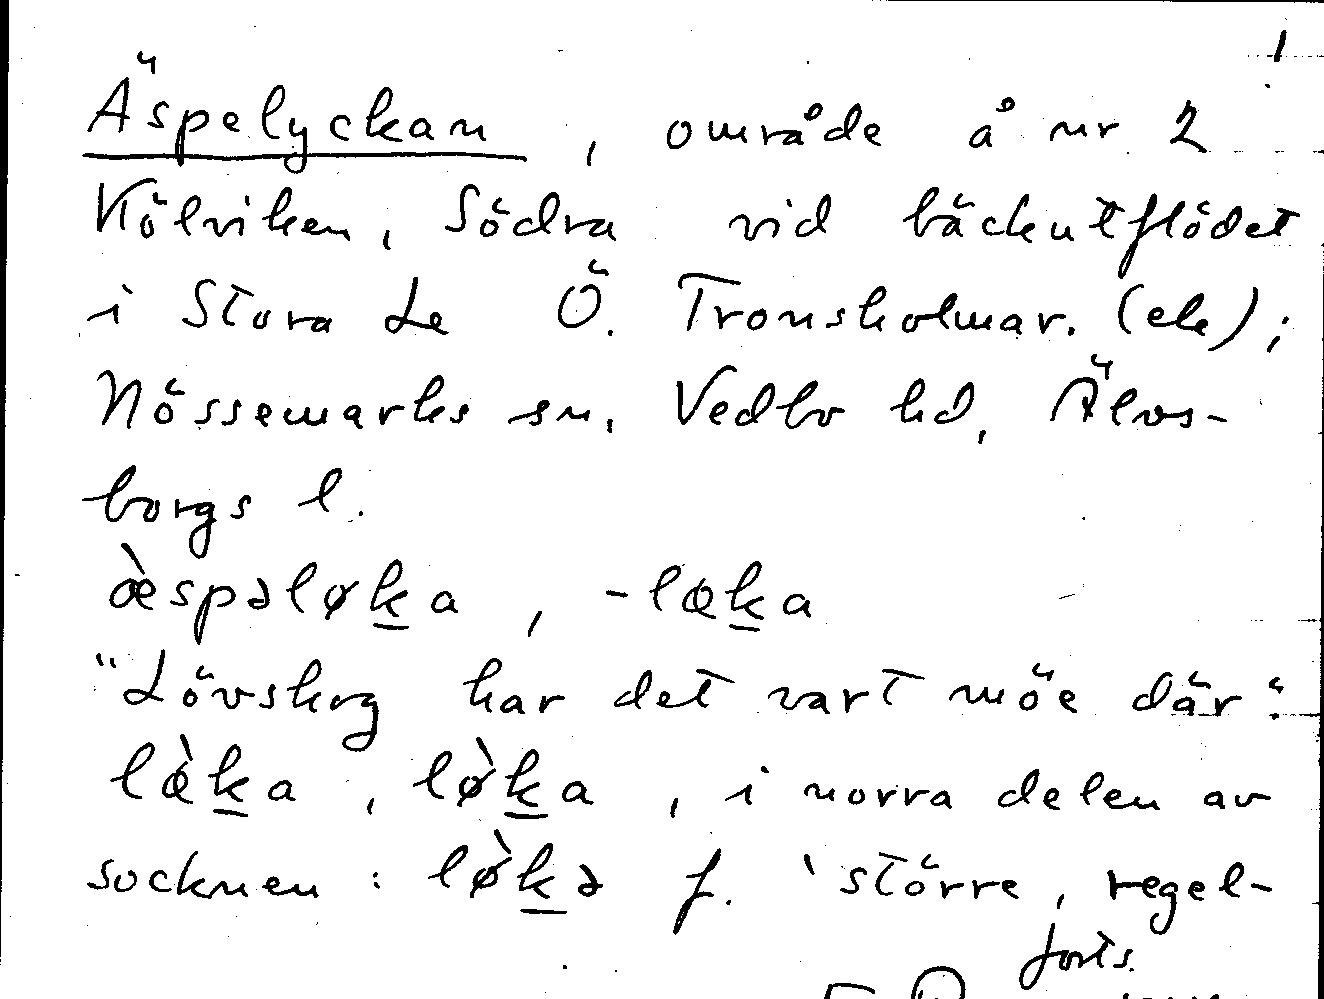 1
Äspelyckan, område å nr 2
Kölviken, Södra vid bäckutflödet
i Stora Le Ö. Tronsholmar. (ek);
Nössemarks sn, Vedbo hd, Älvs-
borgs l.
æ̀spəløk̲a, -lœk̲a
"Lövskog har det vart möe där".
lœ̀k̲a, lø̀k̲a, i norra delen av
socknen: lø̀k̲ə f. 'större, regel-
forts.